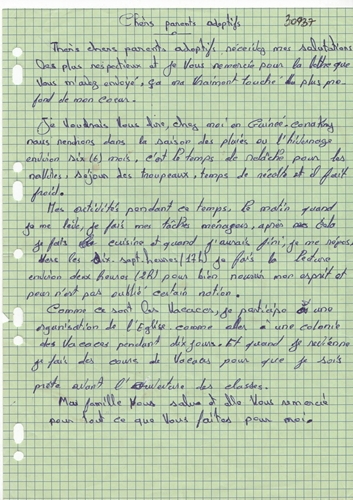 Chers parents adoptifs 30937
Chers chers parents adoptif, recevez mes salutations
des plus respectieux et je vous remercie pour la lettre que
vous m'aviez envoyé, ça me vraiment touche au plus pro-
fond de mon cœur.
Je voudrais vous dire, chez moi en Guinée-conakry
nous rendrons dans la saison des pluies ou l'hivernage
environ six (6) mois. c'est le temps de relâche pour les
, séjour des troupeaux, temps de récolte et il fait
froid.
Mes activités pendant ce temps. Le matin quand
je me lève, je fais mes tâches ménagères, après cela
je fais la cuisine et quand j'aurais fini, je me repose.
Vers les dix-sept heures (17h) je fais la lecture
environ deux heures (2h) pour bien nourrir mon esprit et
pour n'est pas oublié certain notion.
Comme ce sont les vacances, je participe à une
organisation de l'Eglise. comme aller à une colonie
des vacances pendant dix jours. Et quand je revienne
je fais des cours de vacances pour que je sois
prête avant l'ouverture des classes.
Ma famille vous salue et elle vous remercie
pour tout ce que vous faites pour moi.